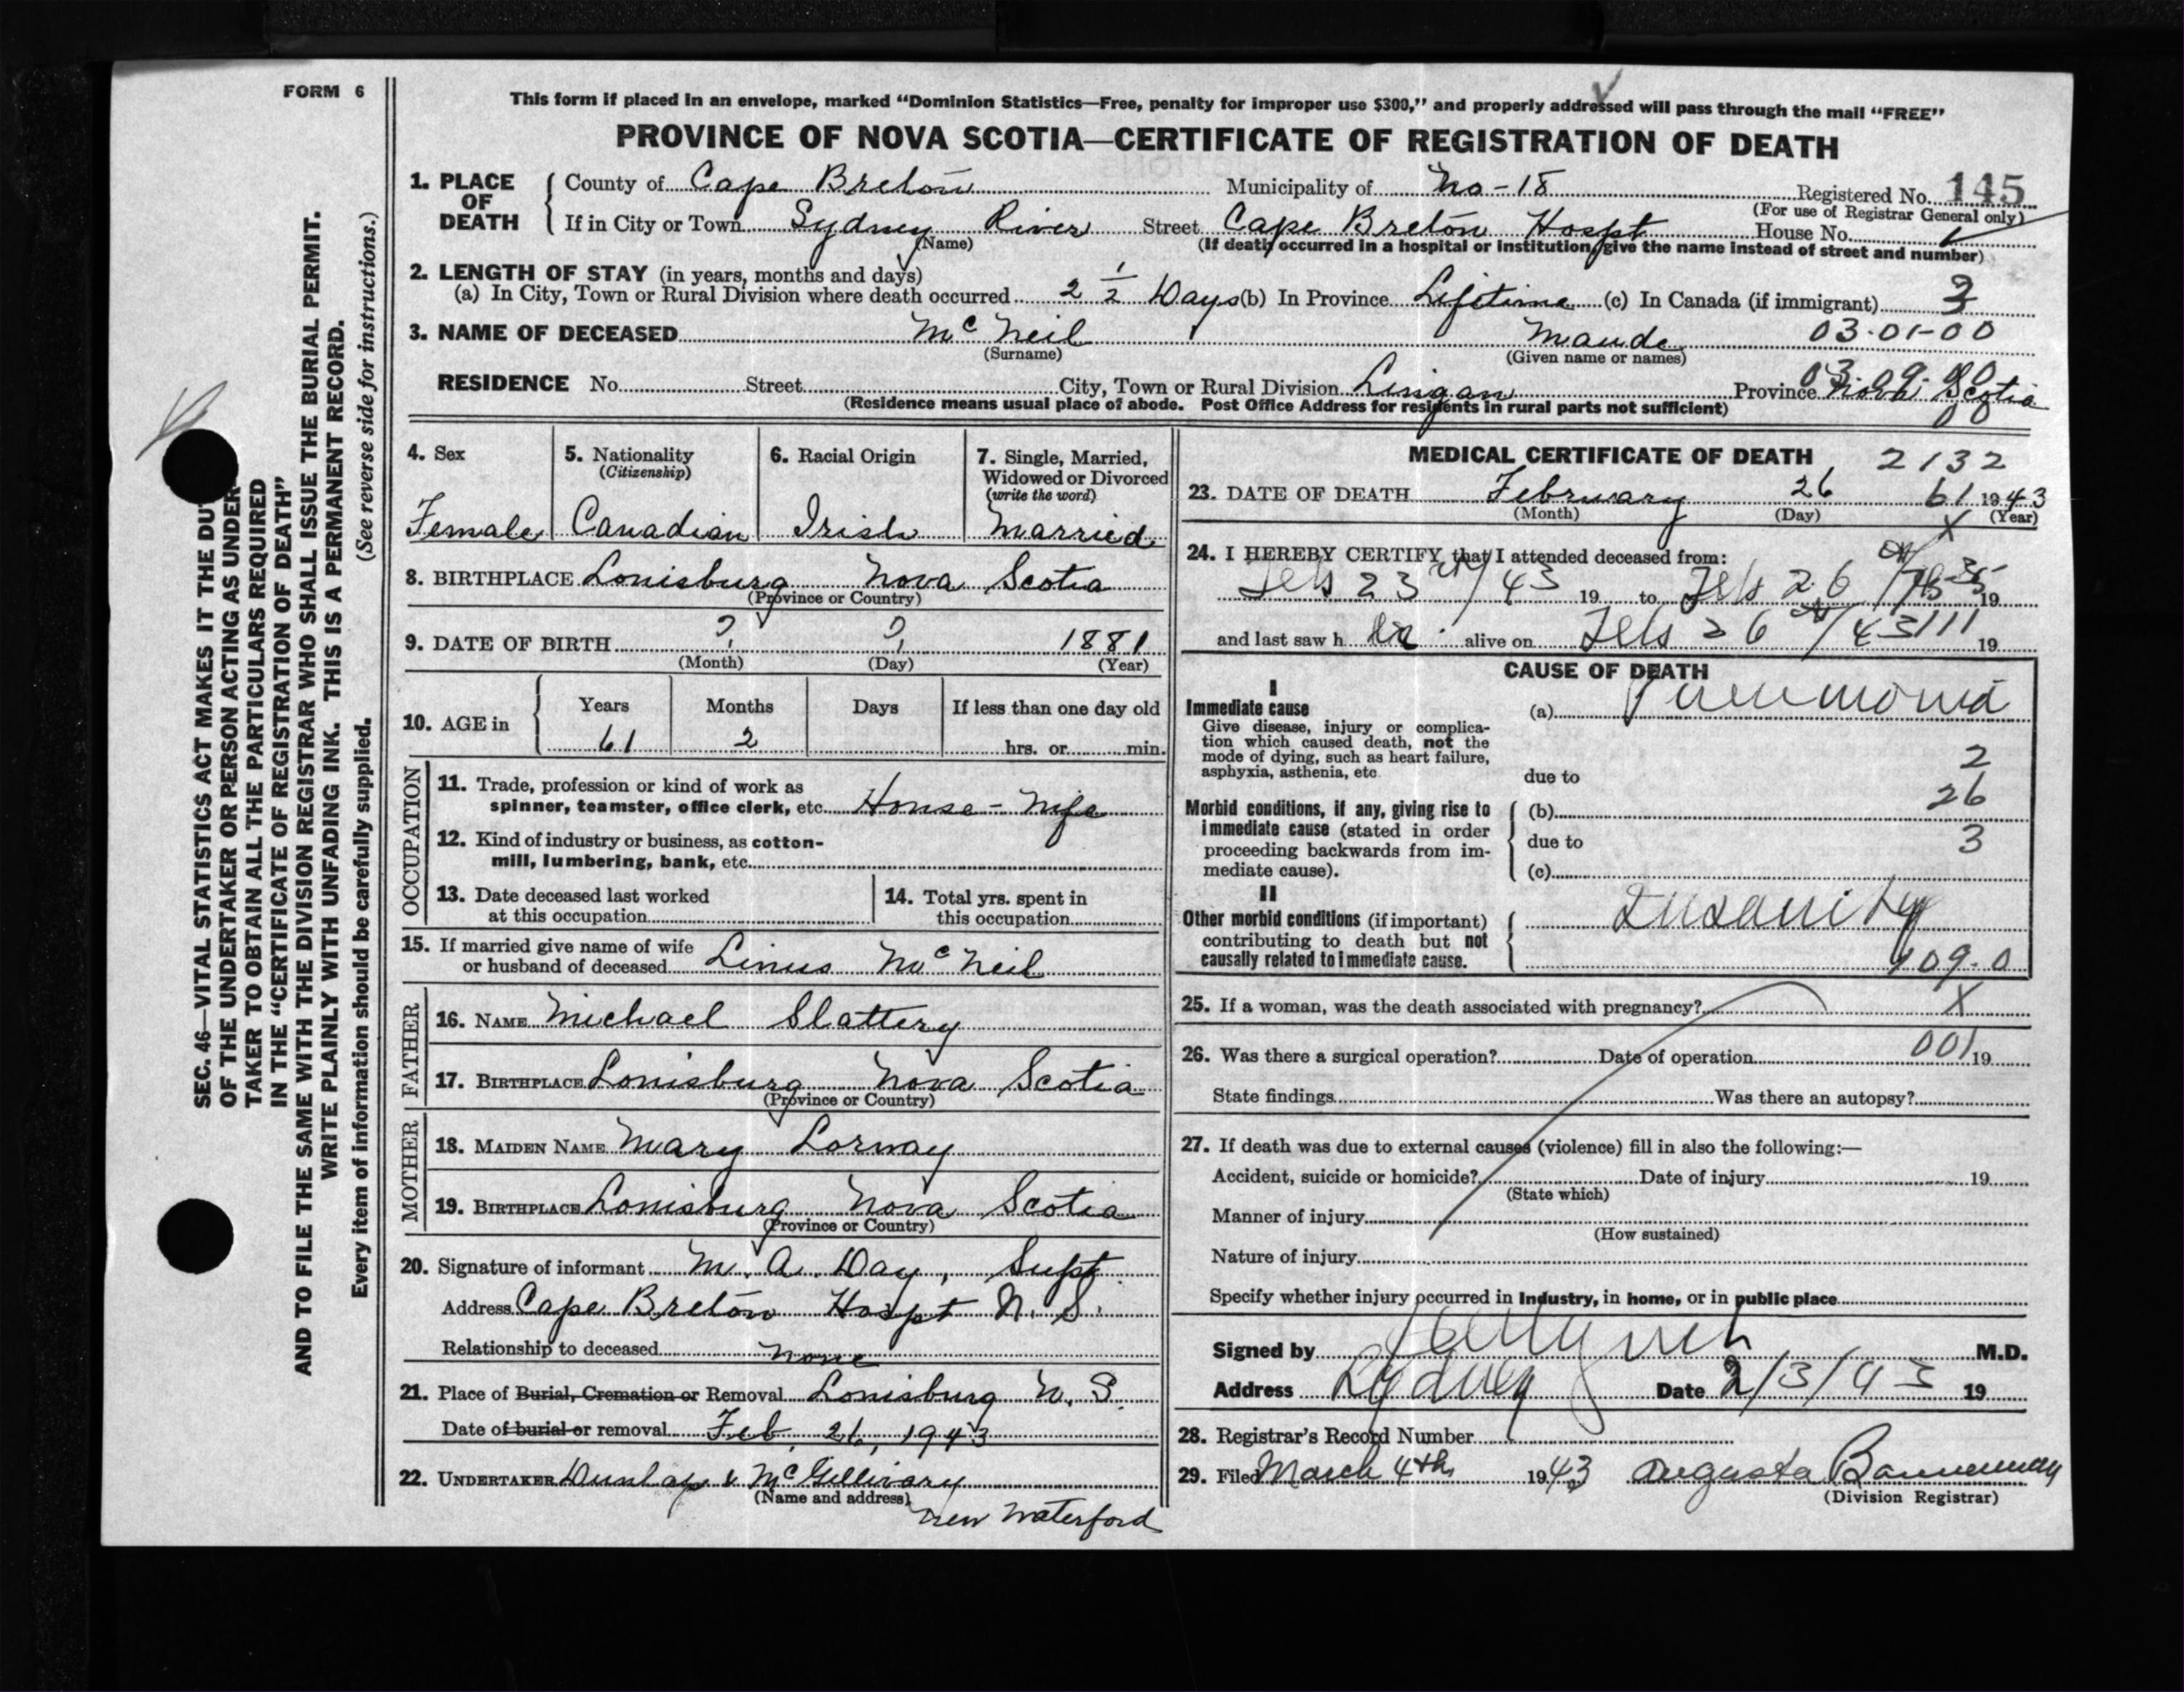 FORM 6
This form if placed in an envelope, marked "Dominion Statistics—Free, penalty for improper use $300," and properly addressed will pass through the mail "FREE"
PROVINCE OF NOVA SCOTIA—CERTIFICATE OF REGISTRATION OF DEATH
1. PLACE OF DEATH County of Cape Breton Municipality of No-18 Registered No. 145
(For use of Registrar General only)
If in City or Town Sydney River Street Cape Breton Hospt House No.
(Name) (If death occurred in a hospital or institution give the name instead of street and number)
2. LENGTH OF STAY (in years, months and days)
(a) In City, Town or Rural Division where death occurred 2 1/2 Days (b) In Province Lifetime (c) In Canada (if immigrant) 3
3. NAME OF DECEASED McNeil Maude 03-01-00
(Surname) (Given name or names)
RESIDENCE No. Street City, Town or Rural Division Lingan Province Nova Scotia 03-09-00
00
(Residence means usual place of abode. Post Office Address for residents in rural parts not sufficient)
4. Sex 5. Nationality (Citizenship) 6. Racial Origin 7. Single, Married, Widowed or Divorced (write the word)
Female Canadian Irish Married
8. BIRTHPLACE Louisburg Nova Scotia
(Province or Country)
9. DATE OF BIRTH ? ? 1881
(Month) (Day) (Year)
10. AGE in Years Months Days If less than one day old
61 2 hrs. or min.
OCCUPATION
11. Trade, profession or kind of work as spinner, teamster, office clerk, etc. House-Wife
12. Kind of industry or business, as cotton-mill, lumbering, bank, etc.
13. Date deceased last worked at this occupation
14. Total yrs. spent in this occupation
15. If married give name of wife or husband of deceased Linus McNeil
FATHER
16. NAME Michael Slattery
17. BIRTHPLACE Louisburg Nova Scotia
(Province or Country)
MOTHER
18. MAIDEN NAME Mary Lorway
19. BIRTHPLACE Louisburg Nova Scotia
(Province or Country)
20. Signature of informant M. A. Day, Supt.
Address Cape Breton Hospt N. S.
Relationship to deceased none
21. Place of Burial, Cremation or Removal Louisburg N. S.
Date of burial or removal Feb. 26, 1943
22. UNDERTAKER Dunlap & McGillivary
(Name and address)
New Waterford
MEDICAL CERTIFICATE OF DEATH 2132
23. DATE OF DEATH February 26 61 1943
(Month) (Day) (Year)
X
24. I HEREBY CERTIFY that I attended deceased from:
Feb 23rd/43 19 to Feb 26 19
and last saw h er alive on Feb 26th/43 111 19
CAUSE OF DEATH
I
Immediate cause
Give disease, injury or complication which caused death, not the mode of dying, such as heart failure, asphyxia, asthenia, etc.
(a) Pneumonia
due to 2
Morbid conditions, if any, giving rise to immediate cause (stated in order proceeding backwards from immediate cause).
(b) 26
due to 3
(c)
II
Other morbid conditions (if important) contributing to death but not causally related to immediate cause.
Insanity
109-0
25. If a woman, was the death associated with pregnancy? X
26. Was there a surgical operation? Date of operation 001 19
State findings Was there an autopsy?
27. If death was due to external causes (violence) fill in also the following:—
Accident, suicide or homicide? Date of injury 19
(State which)
Manner of injury
(How sustained)
Nature of injury
Specify whether injury occurred in Industry, in home, or in public place
Signed by M.D.
Address Sydney Date 2/3/43 19
28. Registrar's Record Number
29. Filed March 4th 1943 Augusta Bannerman
(Division Registrar)
SEC. 46—VITAL STATISTICS ACT MAKES IT THE DUTY
OF THE UNDERTAKER OR PERSON ACTING AS UNDER-
TAKER TO OBTAIN ALL THE PARTICULARS REQUIRED
IN THE "CERTIFICATE OF REGISTRATION OF DEATH"
AND TO FILE THE SAME WITH THE DIVISION REGISTRAR WHO SHALL ISSUE THE BURIAL PERMIT.
WRITE PLAINLY WITH UNFADING INK. THIS IS A PERMANENT RECORD.
Every item of information should be carefully supplied. (See reverse side for instructions.)